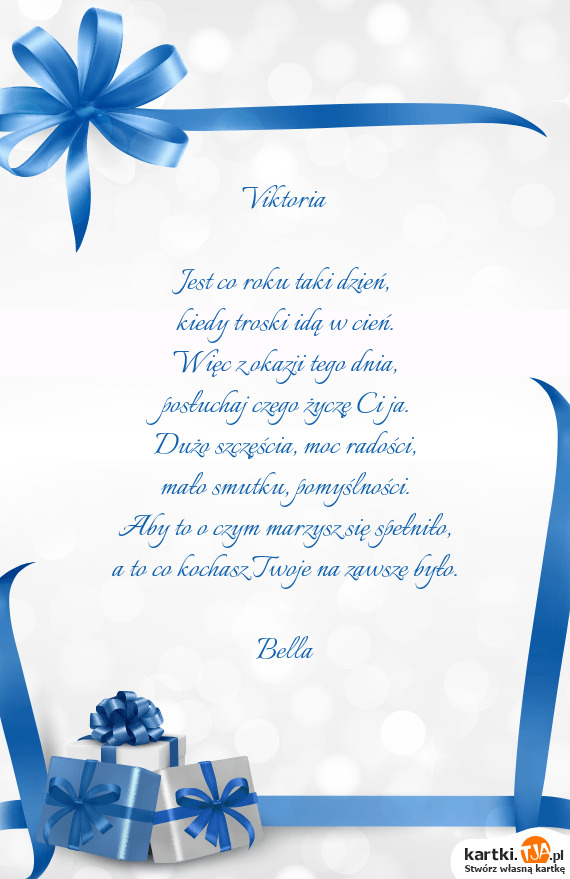 Viktoria
Jest co roku taki dzień,
kiedy troski idą w cień.
Więc z okazji tego dnia,
posłuchaj czego życzę Ci ja.
Dużo szczęścia, moc radości,
mało smutku, pomyślności.
Aby to o czym marzysz się spełniło,
a to co kochasz Twoje na zawsze było.
Bella
kartki.TJA.pl
Stwórz własną kartkę